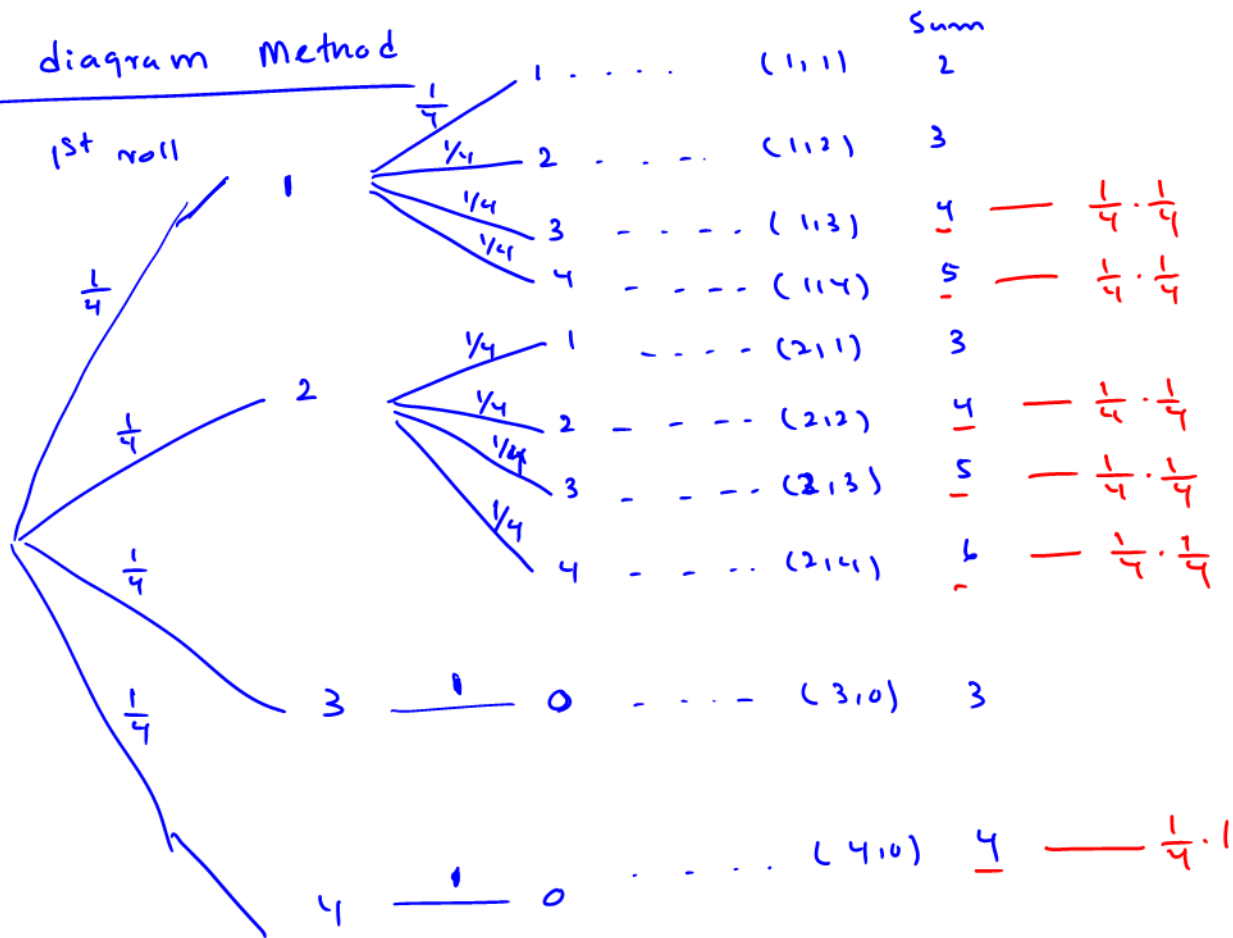 Sum
diagram Method
1st roll
1/4 1 .... (1,1) 2
1 1/4 2 .... (1,2) 3
1/4 3 .... (1,3) 4 — 1/4 · 1/4
1/4 1/4 4 .... (1,4) 5 — 1/4 · 1/4
1/4 1 .... (2,1) 3
1/4 2 1/4 2 .... (2,2) 4 — 1/4 · 1/4
1/4 3 .... (2,3) 5 — 1/4 · 1/4
1/4 1/4 4 .... (2,4) 6 — 1/4 · 1/4
1/4 3 1 0 .... (3,0) 3
4 1 0 .... (4,0) 4 — 1/4 · 1